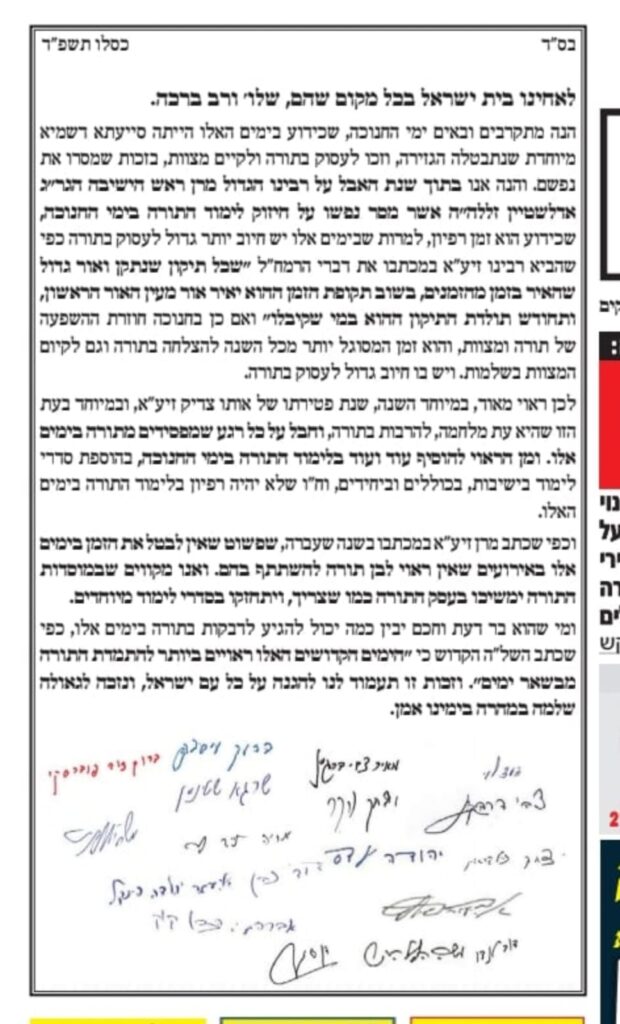 בס"ד
כסלו תשפ"ד
לאחינו בית ישראל בכל מקום שהם, שלו' ורב ברכה.
הנה מתקרבים ובאים ימי החנוכה, שכידוע בימים האלו הייתה סייעתא דשמיא
מיוחדת שנתבטלה הגזירה, וזכו לעסוק בתורה ולקיים מצוות, בזכות שמסרו את
נפשם. והנה אנו בתוך שנת האבל על רבינו הגדול מרן ראש הישיבה הגר"ג
אדלשטיין זללה"ה אשר מסר נפשו על חיזוק לימוד התורה בימי החנוכה,
שכידוע הוא זמן רפיון, למרות שבימים אלו יש חיוב יותר גדול לעסוק בתורה כפי
שהביא רבינו זיע"א במכתבו את דברי הרמח"ל "שכל תיקון שנתקן ואור גדול
שהאיר בזמן מהזמנים, בשוב תקופת הזמן ההוא יאיר אור מעין האור הראשון,
ותחודש תולדת התיקון ההוא במי שקיבלו" ואם כן בחנוכה חוזרת ההשפעה
של תורה ומצוות, והוא זמן המסוגל יותר מכל השנה להצלחה בתורה וגם לקיום
המצוות בשלמות. ויש בו חיוב גדול לעסוק בתורה.
לכן ראוי מאוד, במיוחד השנה, שנת פטירתו של אותו צדיק זיע"א, ובמיוחד בעת
הזו שהיא עת מלחמה, להרבות בתורה, וחבל על כל רגע שמפסידים מתורה בימים
אלו. ומן הראוי להוסיף עוד ועוד בלימוד התורה בימי החנוכה, בהוספת סדרי
לימוד בישיבות, בכוללים וביחידים, וח"ו שלא יהיה רפיון בלימוד התורה בימים
האלו.
וכפי שכתב מרן זיע"א במכתבו בשנה שעברה, שפשוט שאין לבטל את הזמן בימים
אלו באירועים שאין ראוי לבן תורה להשתתף בהם. ואנו מקווים שבמוסדות
התורה ימשיכו בעסק התורה כמו שצריך, ויתחזקו בסדרי לימוד מיוחדים.
ומי שהוא בר דעת וחכם יבין כמה יכול להגיע לדבקות בתורה בימים אלו, כפי
שכתב השל"ה הקדוש כי "הימים הקדושים האלו ראויים ביותר להתמדת התורה
מבשאר ימים". וזכות זו תעמוד לנו להגנה על כל עם ישראל, ונזכה לגאולה
שלמה במהרה בימינו אמן.
ברוך
שרגא שטנמן
יהודה עדס
על